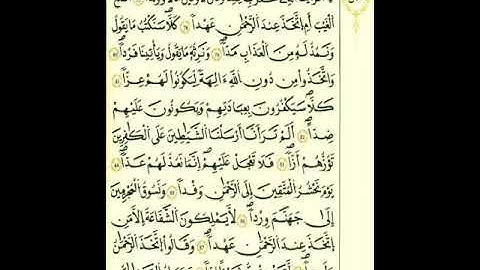 الْغَيْبَ أَمِ اتَّخَذَ عِندَ الرَّحْمَٰنِ عَهْدًا ۝٧٨ كَلَّا ۚ سَنَكْتُبُ مَا يَقُولُ
وَنَمُدُّ لَهُ مِنَ الْعَذَابِ مَدًّا ۝٧٩ وَنَرِثُهُ مَا يَقُولُ وَيَأْتِينَا فَرْدًا ۝٨٠
وَاتَّخَذُوا مِن دُونِ اللَّهِ آلِهَةً لِّيَكُونُوا لَهُمْ عِزًّا ۝٨١
كَلَّا ۚ سَيَكْفُرُونَ بِعِبَادَتِهِمْ وَيَكُونُونَ عَلَيْهِمْ
ضِدًّا ۝٨٢ أَلَمْ تَرَ أَنَّا أَرْسَلْنَا الشَّيَاطِينَ عَلَى الْكَافِرِينَ
تَؤُزُّهُمْ أَزًّا ۝٨٣ فَلَا تَعْجَلْ عَلَيْهِمْ ۖ إِنَّمَا نَعُدُّ لَهُمْ عَدًّا ۝٨٤
يَوْمَ نَحْشُرُ الْمُتَّقِينَ إِلَى الرَّحْمَٰنِ وَفْدًا ۝٨٥ وَنَسُوقُ الْمُجْرِمِينَ
إِلَىٰ جَهَنَّمَ وِرْدًا ۝٨٦ لَّا يَمْلِكُونَ الشَّفَاعَةَ إِلَّا مَنِ
اتَّخَذَ عِندَ الرَّحْمَٰنِ عَهْدًا ۝٨٧ وَقَالُوا اتَّخَذَ الرَّحْمَٰنُ